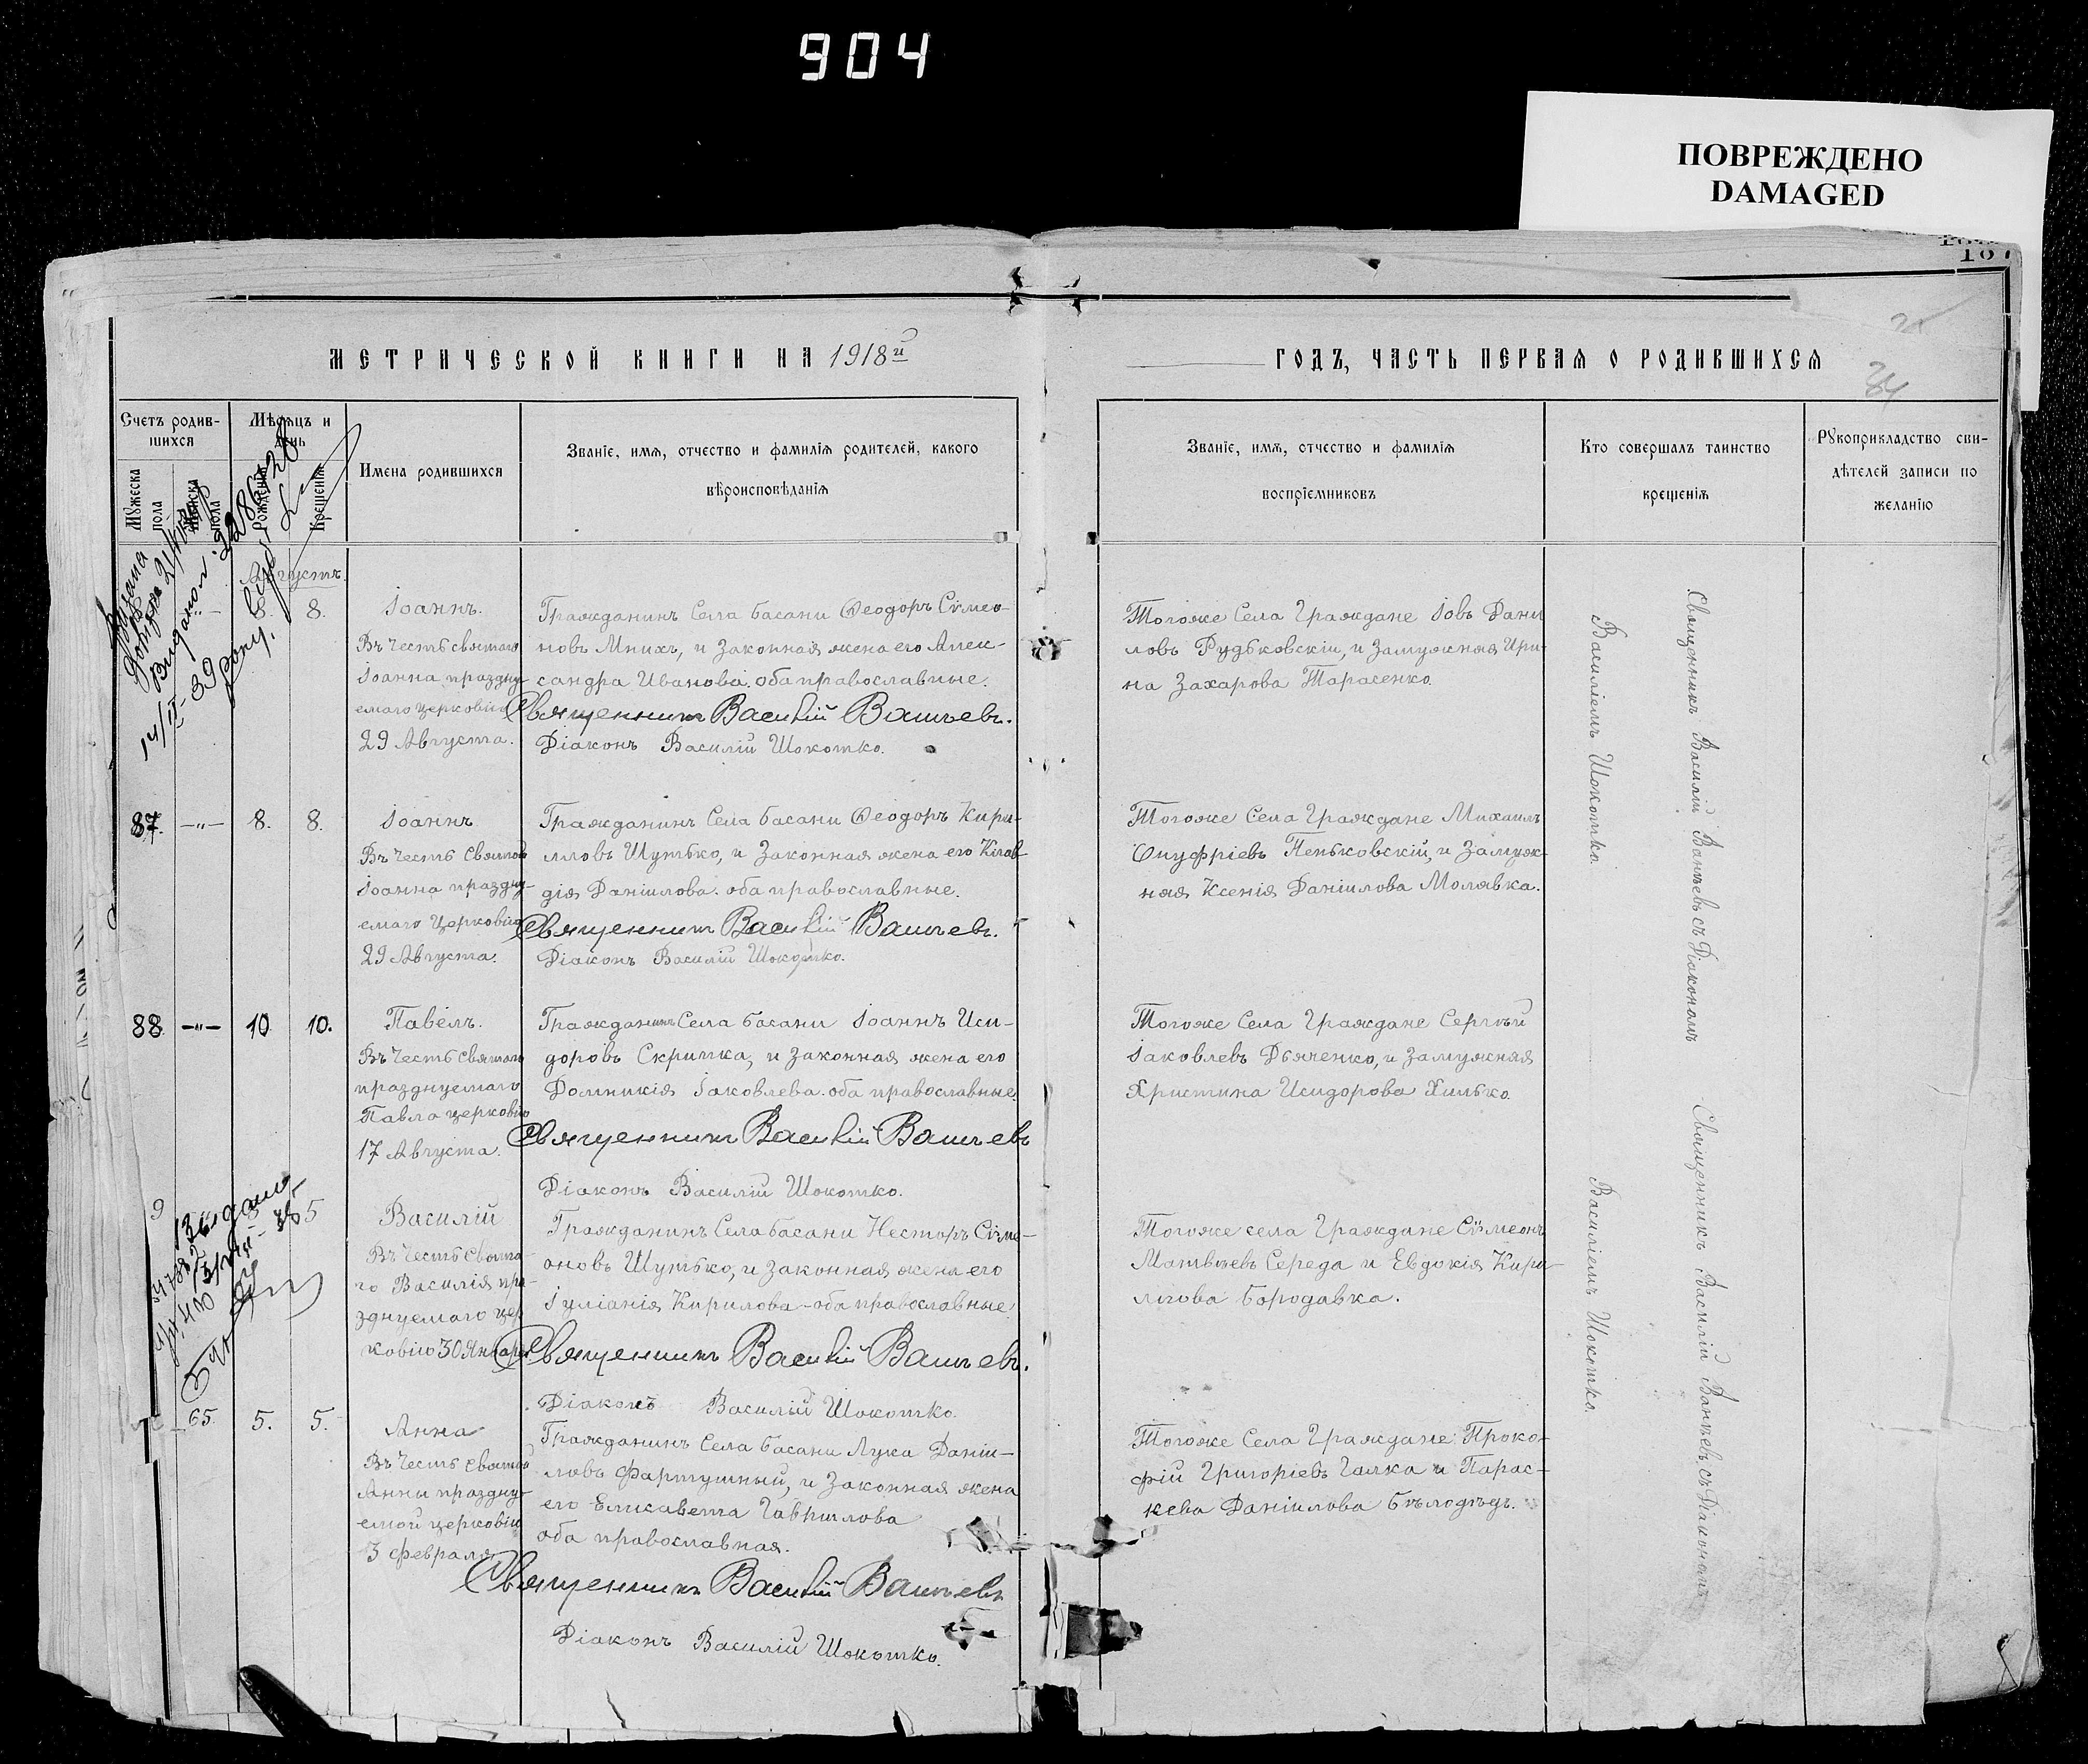 904
ПОВРЕЖДЕНО
DAMAGED
187
34
МЕТРИЧЕСКОЙ КНИГИ НА 1918й
ГОДЪ, ЧАСТЬ ПЕРВАЯ О РОДИВШИХСЯ
Счетъ родив-
шихся
Мужеска
пола
Женска
пола
Мѣсяцъ и
день
Рожденія
Крещенія
Имена родившихся
Званіе, имя, отчество и фамилія родителей, какого
вѣроисповѣданія
Званіе, имя, отчество и фамилія
воспріемниковъ
Кто совершалъ таинство
крещенія
Рукоприкладство сви-
дѣтелей записи по
желанію
Августъ.
8. 8.
Іоаннъ.
Въ честь святаго
Іоанна праздну-
емаго церковію
29 Августа.
Гражданинъ Села Басани Ѳеодоръ Сѵмео-
новъ Мнихъ, и Законная жена его Алек-
сандра Иванова. оба православные.
Священникъ Василій Ваньевъ.
Діаконъ Василій Шокотко.
Тогоже Села Граждане Іовъ Дани
ловъ Рудьковскій, и Замужняя Ири-
на Захарова Тарасенко.
87. —"— 8. 8.
Іоаннъ
Въ честь Святаго
Іоанна праздну-
емаго Церковію
29 Августа.
Гражданинъ Села Басани Ѳеодоръ Кири-
лловъ Шутько, и Законная жена его Клав-
дія Даніилова. оба православные.
Священникъ Василій Ваньевъ.
Діаконъ Василій Шокотко.
Тогоже Села Граждане Михаилъ
Онуфріевъ Пеньковскій, и Замуж-
няя Ксенія Даніилова Молявка.
Священникъ Василій Ваньевъ съ Діакономъ
Василіемъ Шокотко.
88 —"— 10 10.
Павелъ.
Въ честь Святаго
празднуемаго
Павла церковію
17 Августа.
Гражданинъ Села Басани Іоаннъ Иси-
доровъ Скрипка, и Законная жена его
Домникія Іаковлева. оба православные.
Священникъ Василій Ваньевъ
Діаконъ Василій Шокотко.
Тогоже Села Граждане Сергѣй
Іаковлевъ Дьяченко, и Замужняя
Христина Исидорова Хилько.
9 5
Василій
Въ честь Свята-
го Василія пра-
зднуемаго цер-
ковію 30 Января
Гражданинъ Села Басани Несторъ Сѵме-
оновъ Шутько, и Законная жена его
Іуліанія Кирилова - оба православные.
Священникъ Василій Ваньевъ.
Діаконъ Василій Шокотко.
Тогоже села Граждане Сѵмеонъ
Матвѣевъ Середа и Евдокія Кири-
ллова Бородавка.
65. 5. 5.
Анна
Въ честь святой
Анны праздну-
емой церковію
3 февраля
Гражданинъ Села Басани Лука Даніи-
ловъ Фартушный, и Законная жена
его Елисавета Гавриілова
оба православная.
Священникъ Василій Ваньевъ
Діаконъ Василій Шокотко.
Тогоже Села Граждане Проко-
фій Григоріевъ Галка и Парас-
кева Даніилова Бѣлодѣдъ.
Священникъ Василій Ваньевъ съ Діакономъ
Василіемъ Шокотко.